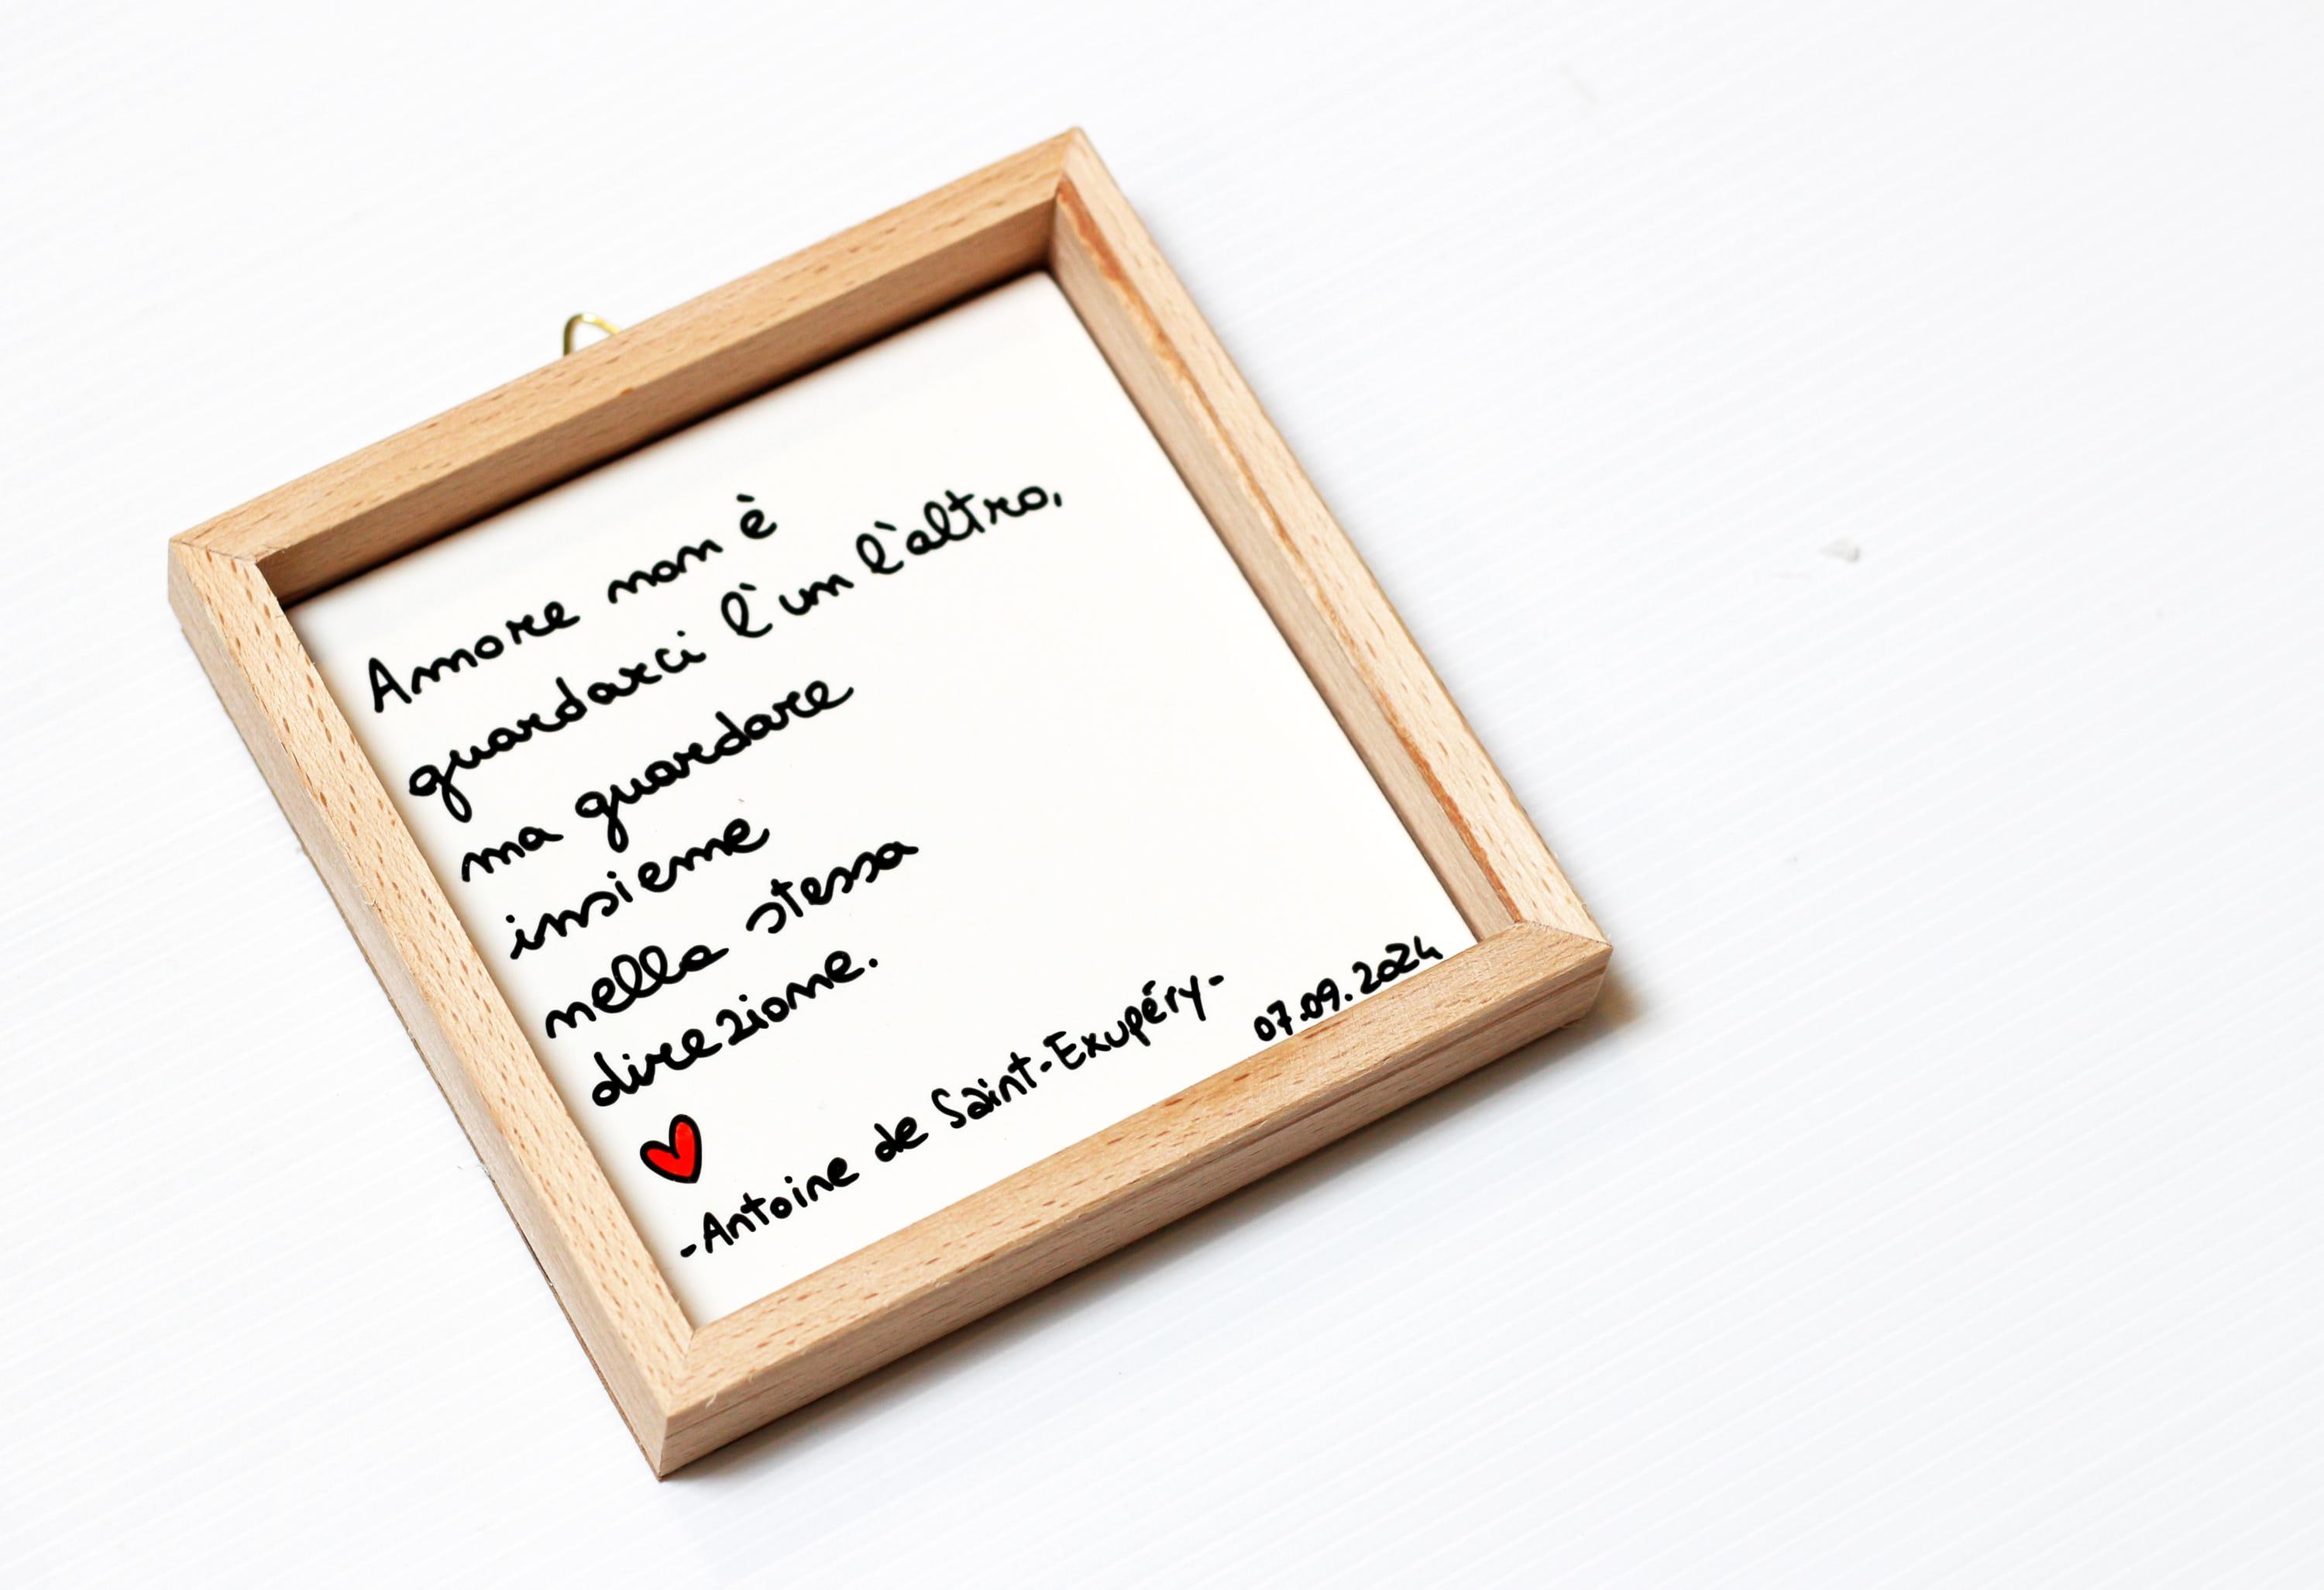 Amore non è
guardarci l'un l'altro,
ma guardare
insieme
nella stessa
direzione.
-Antoine de Saint-Exupéry-
07.09.2024